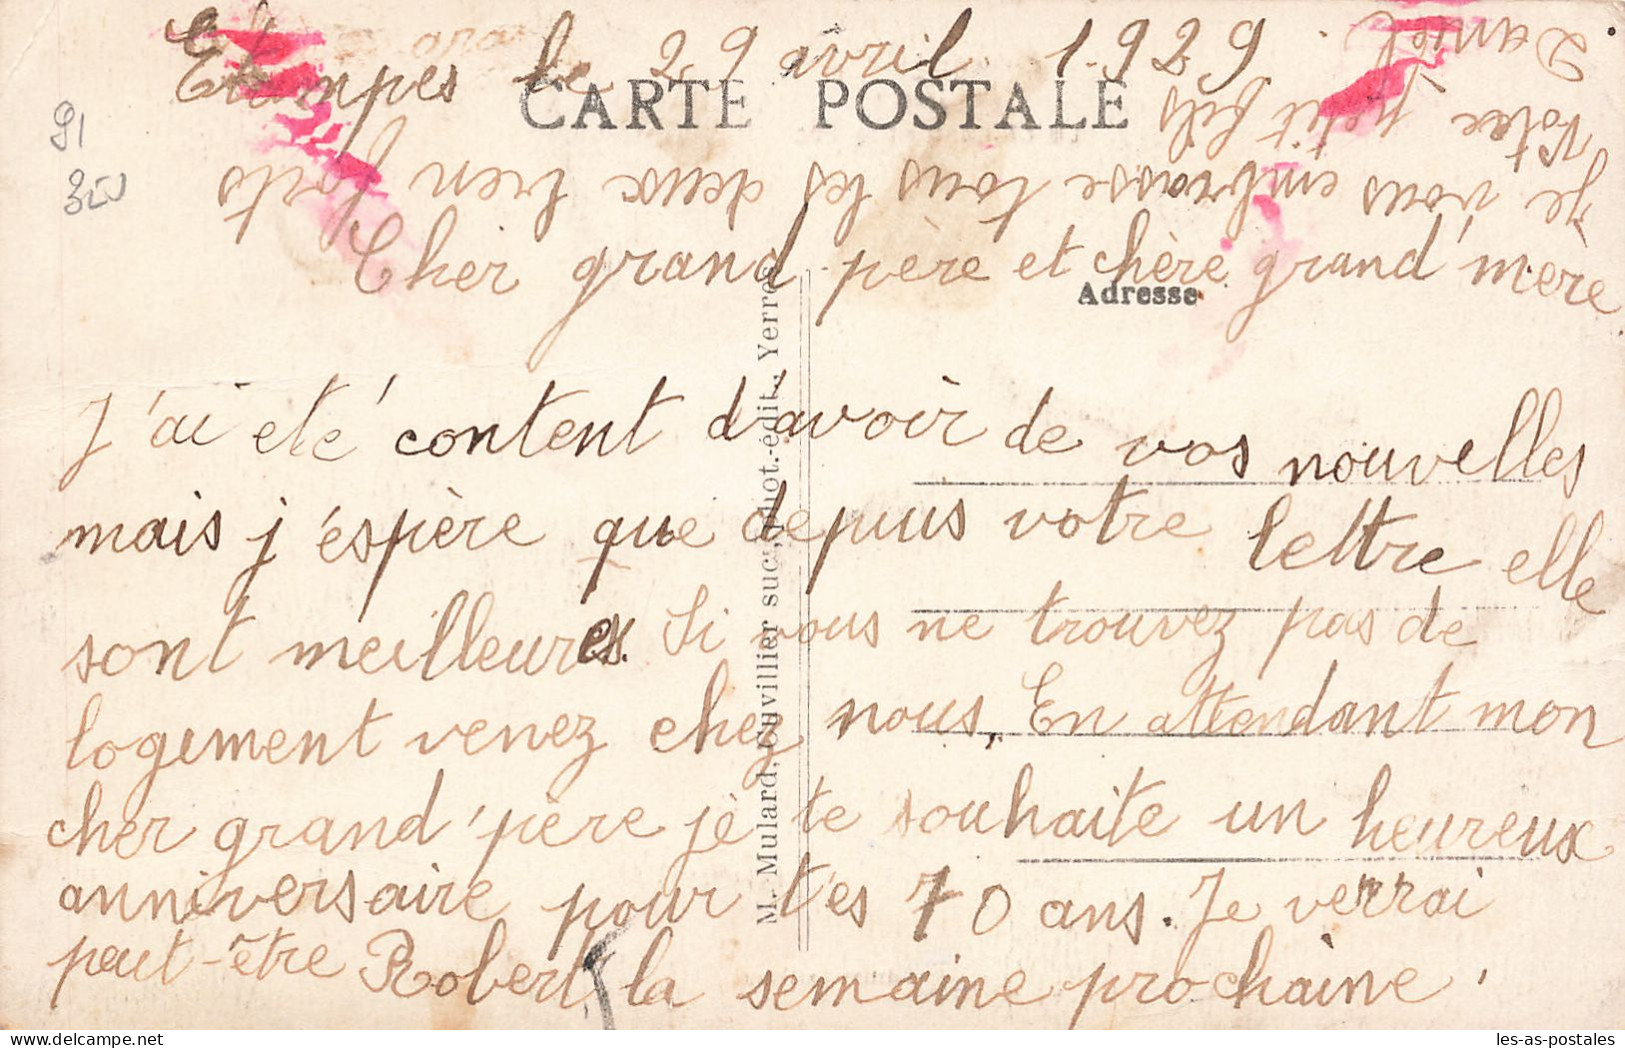 Etampes le 29 avril 1929.
CARTE POSTALE
Cher grand père et chère grand'mère
Adresse
J'ai eté content d'avoir de vos nouvelles
mais j'éspère que depuis votre lettre elle
sont meilleures. Si vous ne trouvez pas de
logement venez chez nous, En attendant mon
cher grand'père je te souhaite un heureux
anniversaire pour tes 70 ans. Je verrai
peut-être Robert la semaine prochaine.
Je vous embrasse tous les deux bien forts
Votre petit fils
Daniel
M. Mulard, Cuvillier suc', phot.-édit., Yerres
91
320
les-as-postales